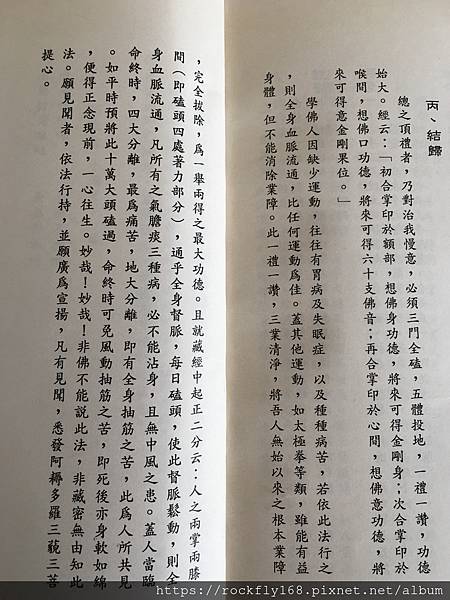 丙、結歸
總之頂禮者，乃對治我慢意，必須三門全磕，五體投地，一禮一讚，功德
始大。經云：「初合掌印於額部，想佛身功德，將來可得金剛身；次合掌印於
喉間，想佛口功德，將來可得六十支佛音；再合掌印於心間，想佛意功德，將
來可得意金剛果位。」
學佛人因缺少運動，往往有胃病及失眠症，以及種種病苦，若依此法行之
，則全身血脈流通，比任何運動爲佳。蓋其他運動，如太極拳等類，雖能有益
身體，但不能消除業障。此一禮一讚，三業清淨，將吾人無始以來之根本業障
，完全拔除，爲一舉兩得之最大功德。且就藏經中起正二分云：人之兩掌兩膝
間（即磕頭四處著力部分），通乎全身督脈，每日磕頭，使此督脈鬆動，則全
身血脈流通，凡所有之氣膽痰三種病，必不能沾身，且無中風之患。蓋人當臨
命終時，四大分離，最爲痛苦，地大分離，即有全身抽筋之苦，此爲人所共見
。如平時預將此十萬大頭磕過，命終時可免風動抽筋之苦，即死後亦身軟如綿
，便得正念現前，一心往生。妙哉！妙哉！非佛不能說此法，非藏密無由知此
法。願見聞者，依法行持，並願廣爲宣揚，凡有見聞，悉發阿耨多羅三藐三菩
提心。
https://rockfly168.pixnet.net/album